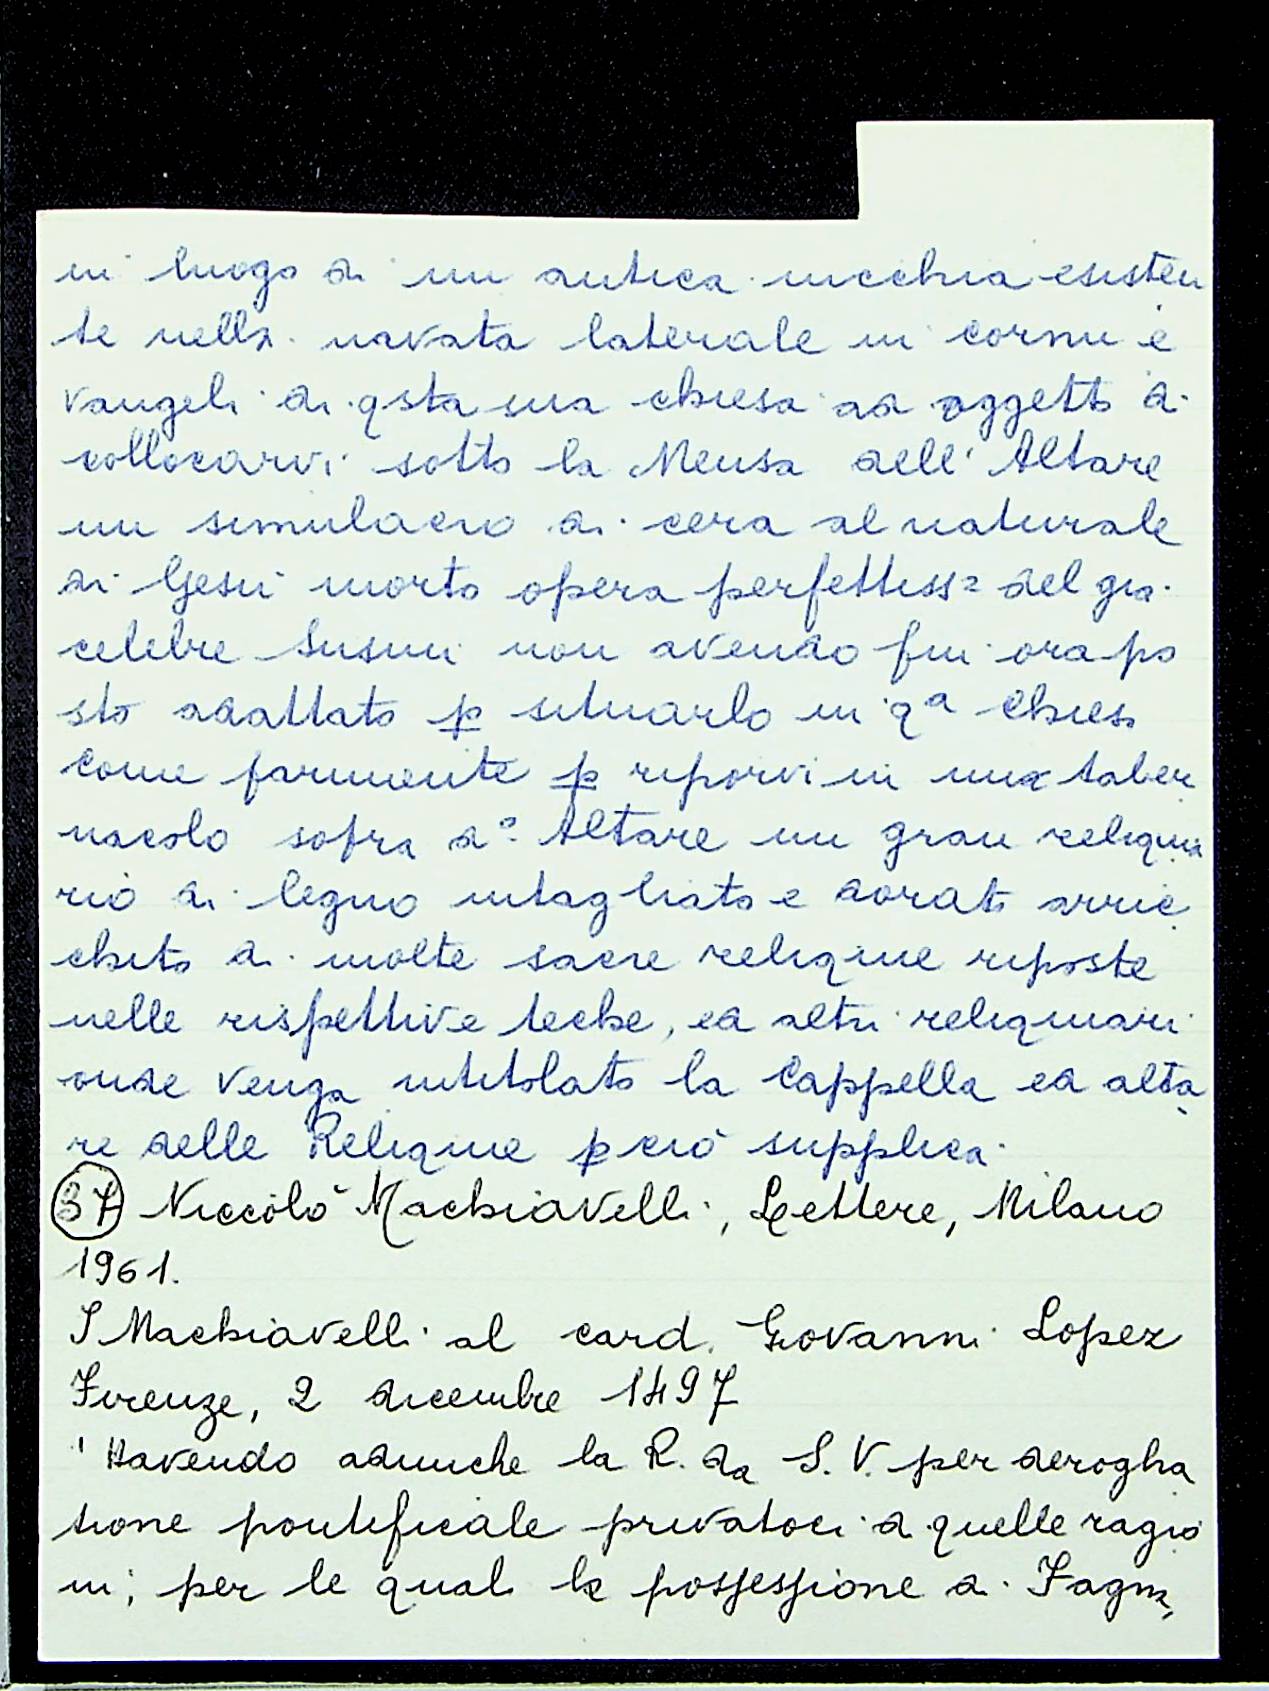 in luogo di un antica nicchia esisten
te nella navata laterale in cornu e
vangeli di qsta sua chiesa ad oggetto di
collocarvi sotto la Mensa dell' Altare
un simulacro di cera al naturale
di Gesù morto opera perfettiss= del gia
celebre Susini non avendo fin ora po
sto adattato p situarlo in qa Chies
come parimente p riporvi in una taber
nacolo sopra do Altare un gran reliquia
rio di legno intagliato e dorato arric
chito di molte sacre reliquie riposte
nelle rispettive teche, ed altri reliquiari
onde venga intitolato la Cappella ed alta
re delle Reliquie p ciò supplica
37 Niccolò Machiavelli, Lettere, Milano
1961.
I Machiavelli al card. Giovanni Lopez
Firenze, 2 dicembre 1497
' Havendo adunche la R. da S. V. per derogha
tione pontificale privatoci di quelle ragio
ni, per le quali la possessione di Fagna,